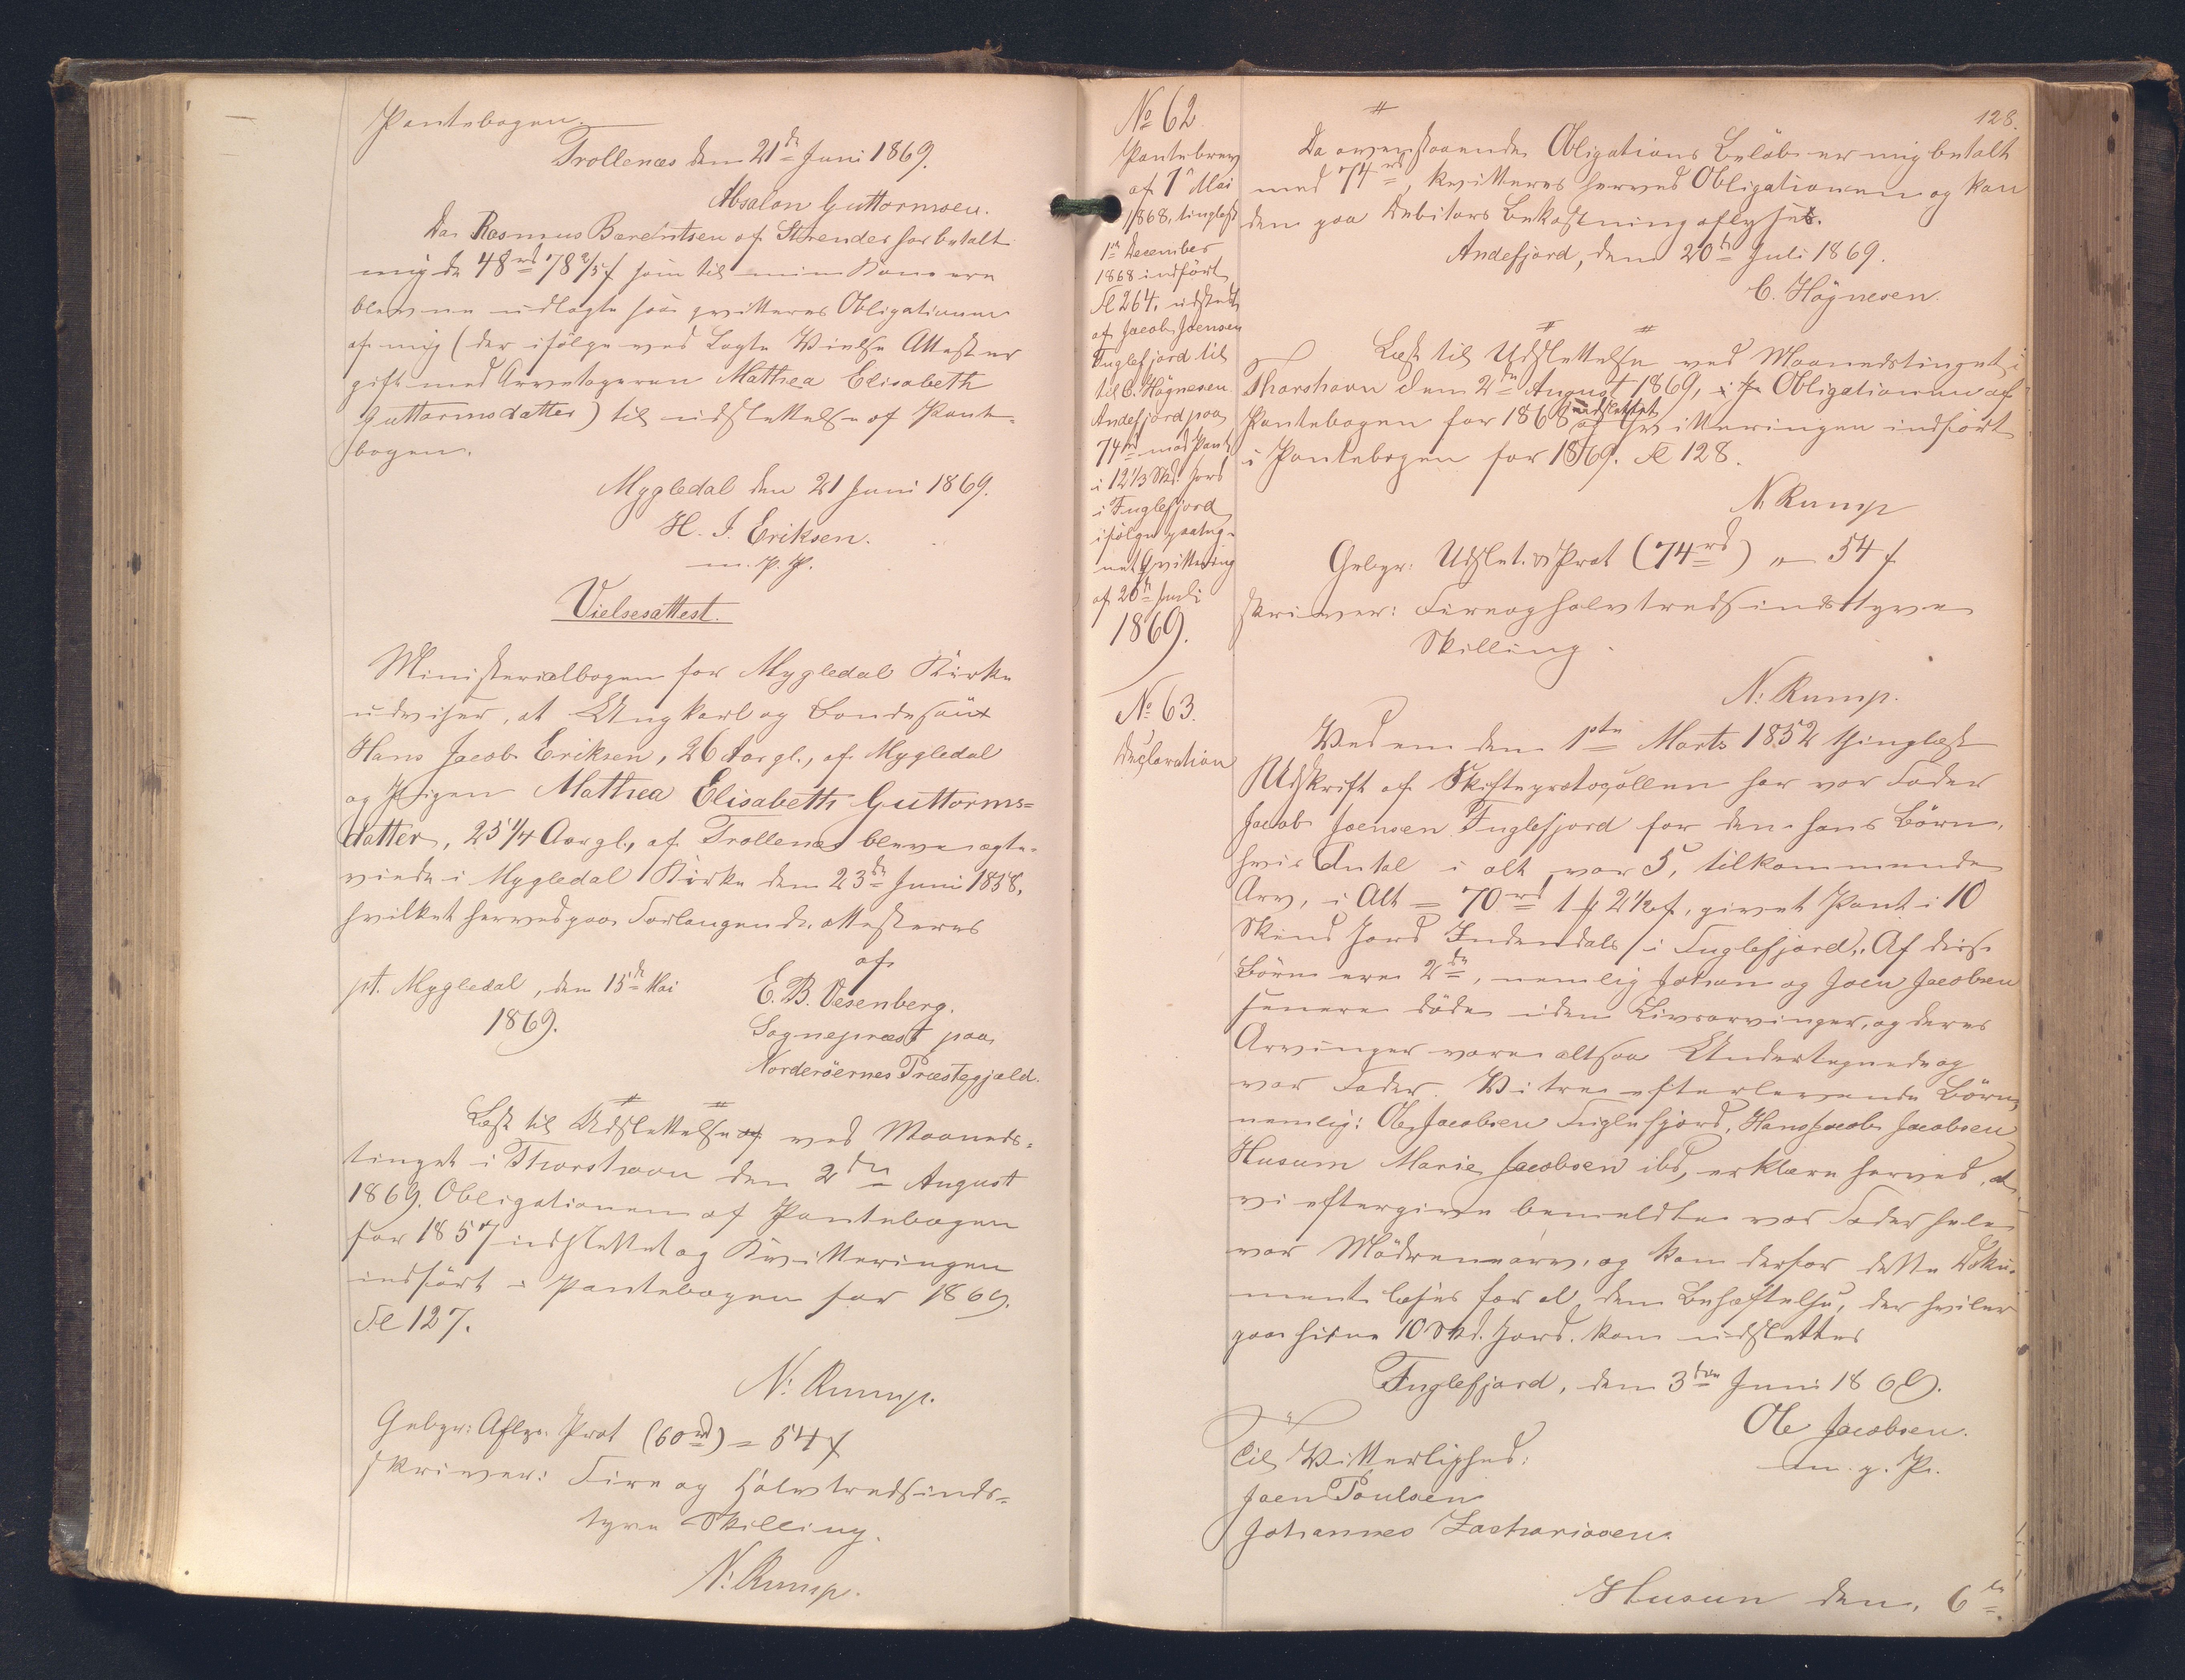 Pantebogen.
Trollenæs den 21de Juni 1869.
Absalon Guttormsen.
Da Rasmus Barentsen af Strender har betalt
mig de 48rd 78 2/5 ß som til min Kone ere
blevne udlagte saa qvitteres Obligationen
af mig (der ifölge ved Lagte Vielse Attest er
gift med Arvetageren Mathea Elisabeth
Guttormsdatter) til udslettelse af Pante-
bogen.
Mygledal den 21 Juni 1869.
H. J. Eriksen.
m. p. P.
Vielsesattest.
Ministerialbogen for Mygledal Kirke
udviser, at Ungkarl og Bondesön
Hans Jacob Eriksen, 26 Aar gl., af Mygledal
og Pigen Mathea Elisabeth Guttorms=
datter, 25 1/4 Aar gl., af Trollenes bleve ægte-
viede i Mygledal Kirke den 23de Juni 1858,
hvilket herved paa Forlangende attesteres
af
pt. Mygledal, den 15de Mai
1869.
E. B. Vesenberg.
Sognepræst paa
Norderöernes Præstegjæld.
Læst til Udslettelse af ved Maaneds-
tinget i Thorshavn den 2den August
1869. Obligationen af Pantebogen
for 1857 udslettet og Kvitteringen
indfört i Pantebogen for 1869.
Fl 127.
N. Rump.
Gebyr: Aflæs. Prot (60rd) = 54 ß
skriver: Fire og halvtredsinds-
tyve Skilling.
N. Rump.
128.
No 62
Pantebrev
af 7 Mai
1868, tinglæst
1ste December
1868 indfört
Fl 264, udstedt
af Jacob Joensen
Fuglefjord til
til C. Högnesen
Andefjord paa
74rd mod Pant
i 12 1/3 Skd. Jord
i Fuglefjord
ifölge paateg-
net Qvittering
af 20de Juli
1869.
Da ovenstaaende Obligations Belöb er mig betalt
med 74rd, kvitteres herved Obligationen og kan
den paa Debitors Bekostning aflyses.
Andefjord, den 20de Juli 1869.
C. Högnesen.
Læst til Udslettelse ved Maanedstinget i
Thorshavn den 2den August 1869, Obligationen af
Pantebogen for 1868 udslettet og Kvitteringen indfört
i Pantebogen for 1869. Fl 128.
N. Rump
Gebyr: Udslet. & Prot (74rd) " 54 ß
skriver: Fireoghalvtredsindstyve
Skilling.
N. Rump.
No 63.
Declaration
Ved en den 1ste Marts 1852 thinglæst
Udskrift af Skifteprotocollen har vor Fader
Jacob Joensen Fuglefjord for den hans Börn,
hvis Antal i alt var 5, tilkommende
Arv, i Alt = 70rd 1 # 2 1/2 ß, givet Pant i 10
Skind Jord Indendals i Fuglefjord. Af disse
Börn ere 2de, nemlig Johan og Joen Jacobsen
senere döde uden Livsarvinger, og deres
Arvinger vare altsaa Undertegnede og
vor Fader. Vi tre efterlevende Börn,
nemlig: Ole Jacobsen Fuglefjord, Hans Jacob Jacobsen
Husum Marie Jacobsen ibd, erklære herved, at
vi eftergive bemeldte vor Fader hele
vor Mödrenearv, og kan derfor dette Doku-
ment læses for at den Behæftelse, der hviler
paa hine 10 Skd. Jord, kan udslettes
Fuglefjord, den 3die Juni 1869.
Ole Jacobsen.
m. p. P.
Til Vitterlighed:
Joen Poulsen
Johannes Zachariasen.
Husum den 6te